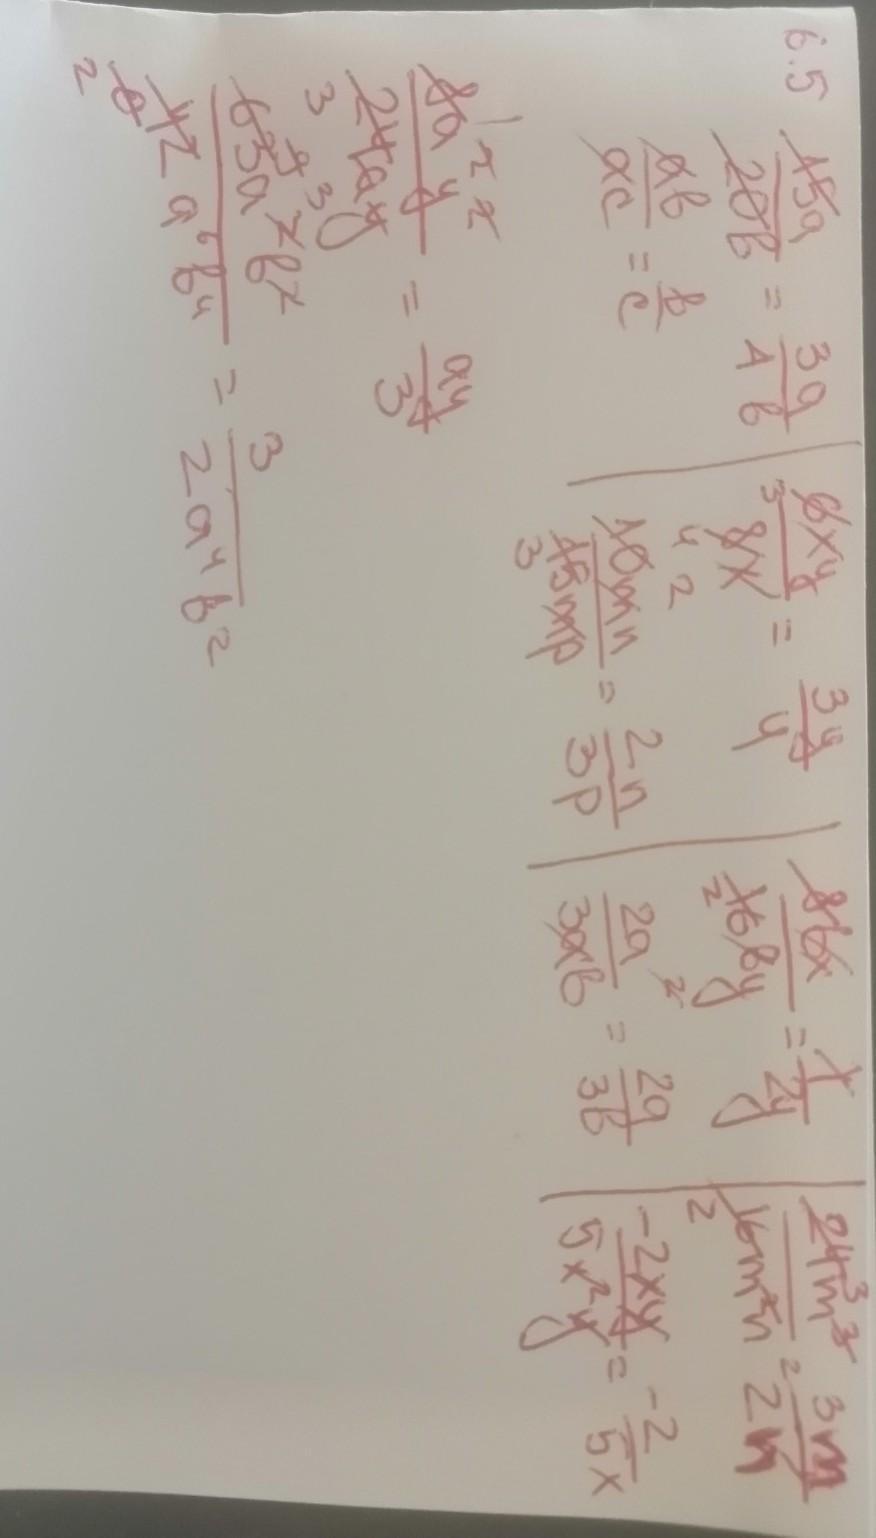 6.5 15a/20b = 3a/4b | 6xy/8x = 3y/4 | 8bx/16by = x/2y | 24m³/16m²n = 3m/2n
ab/ac = b/c | 10mn/15mp = 2n/3p | 2a²/3ab = 2a/3b | -2xy/5x²y = -2/5x
8a²y²/24ay = ay/3
63a²b²/42a⁶b⁴ = 3/2a⁴b²